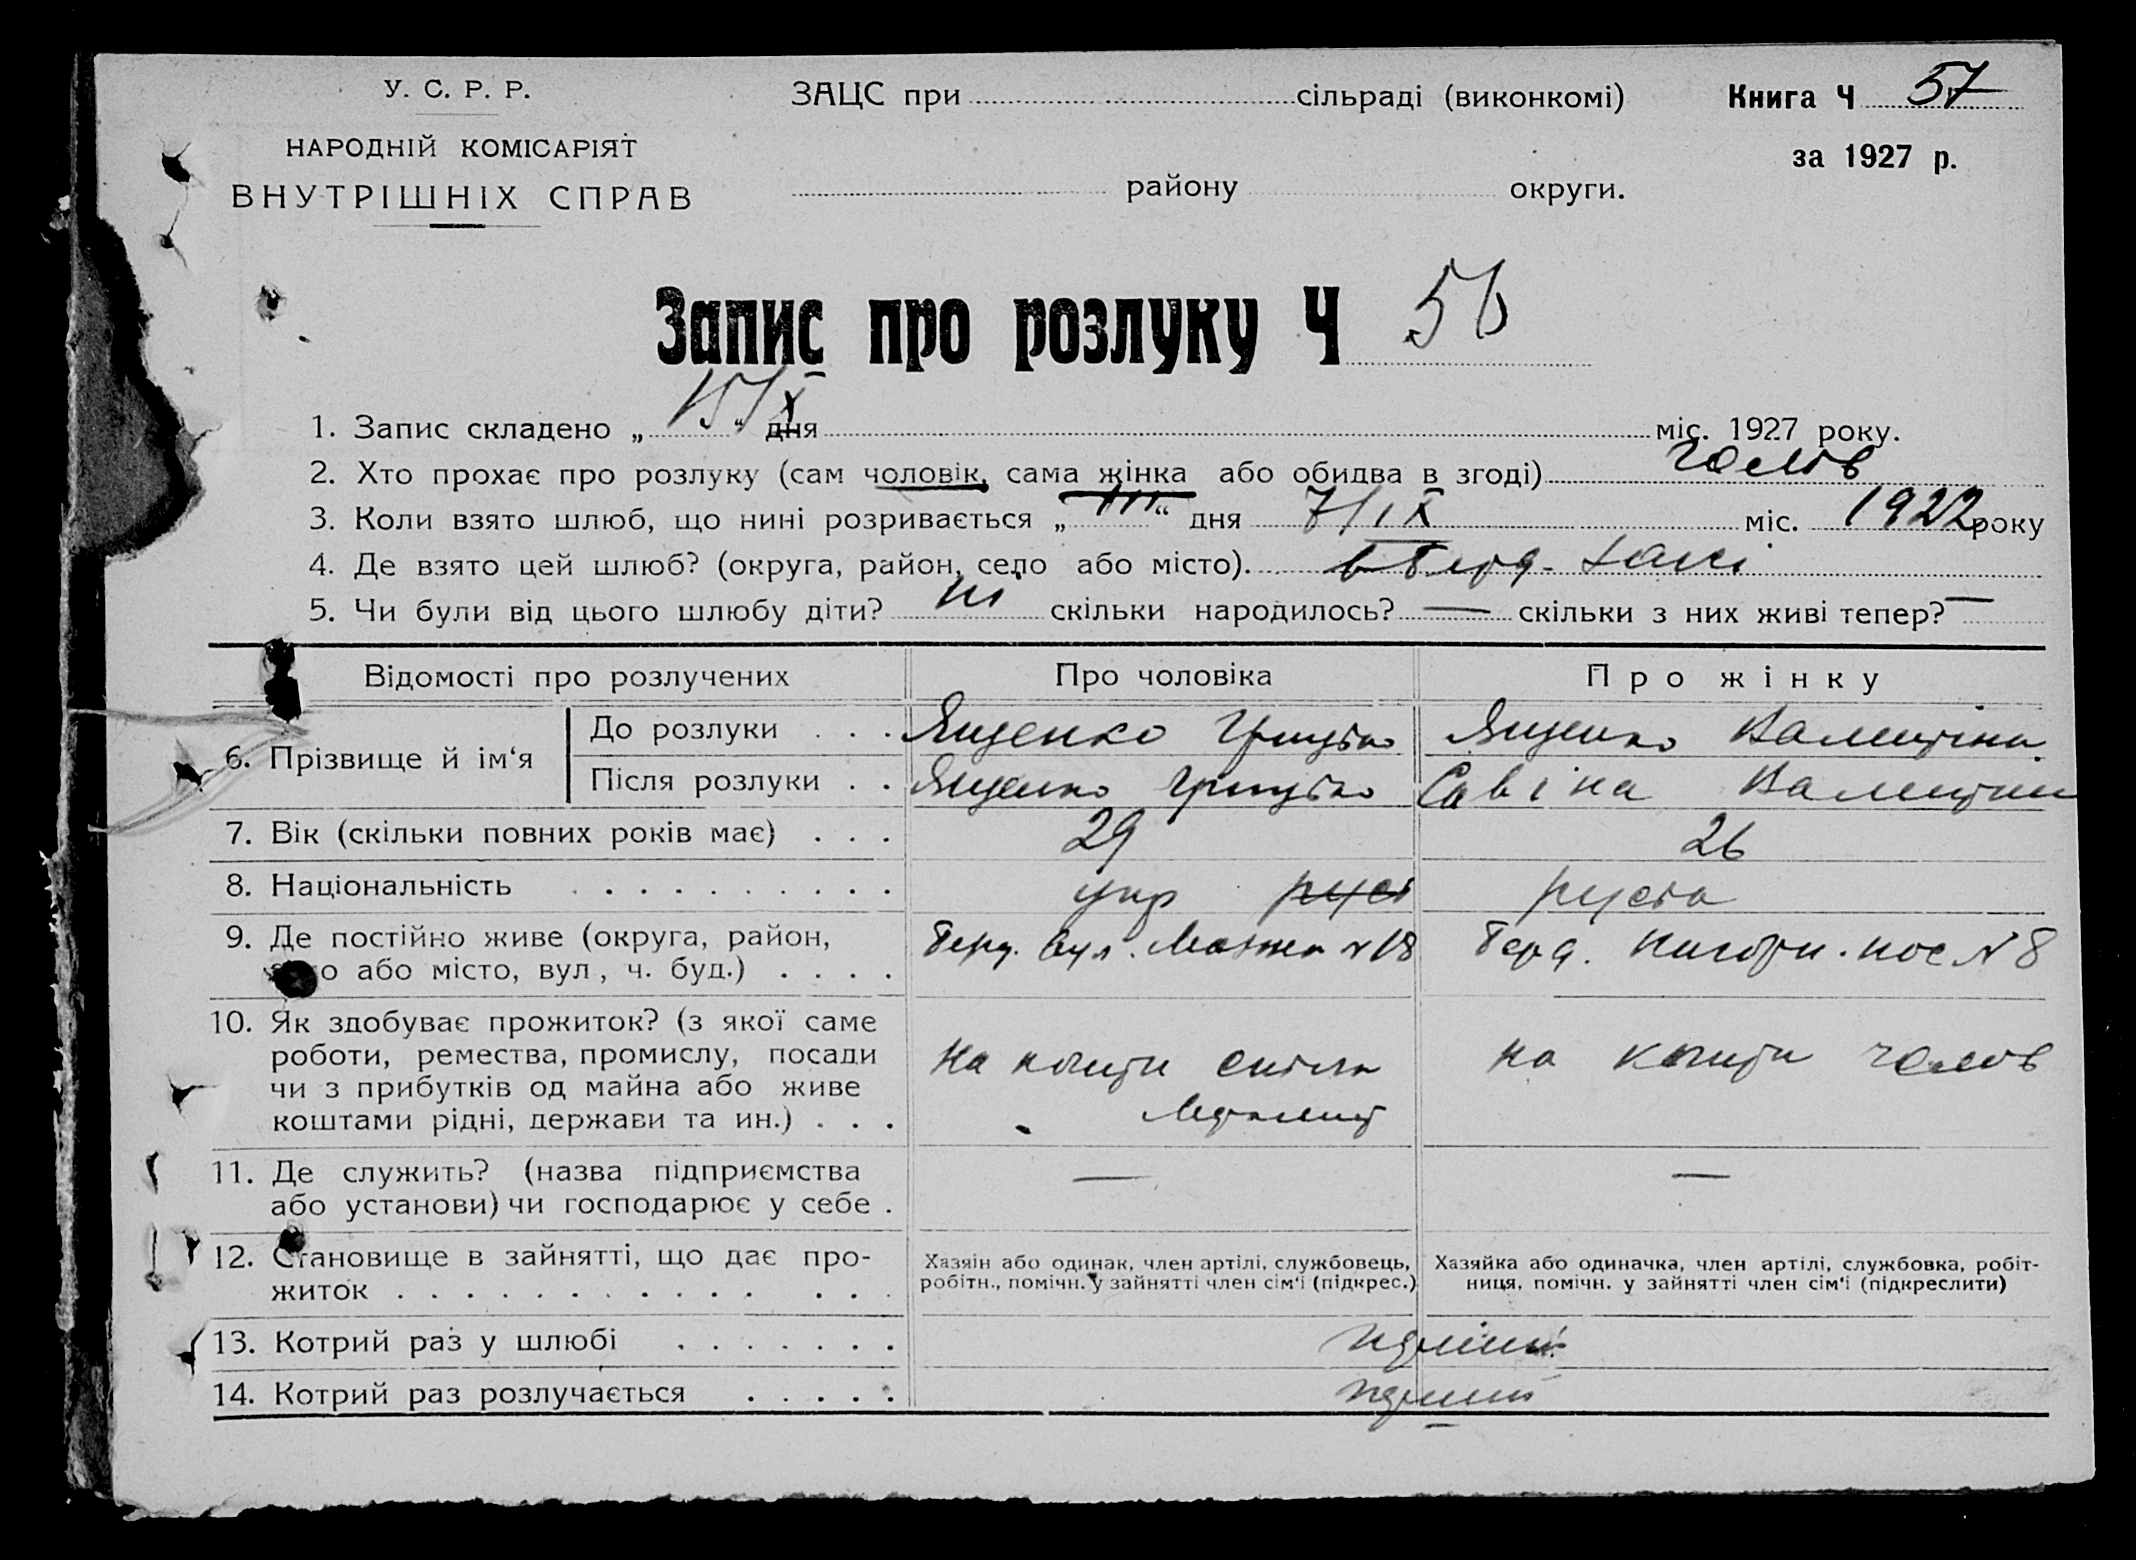 У. С. Р. Р.
НАРОДНІЙ КОМІСАРІЯТ
ВНУТРІШНІХ СПРАВ
ЗАЦС при сільраді (виконкомі)
району округи.
Книга Ч 57
за 1927 р.
Запис про розлуку Ч 56
1. Запис складено „15/X“ дня міс. 1927 року.
2. Хто прохає про розлуку (сам чоловік, сама жінка або обидва в згоді) чолов
3. Коли взято шлюб, що нині розривається „ “ дня 7/IX міс. 1922 року
4. Де взято цей шлюб? (округа, район, село або місто). в Берд.
5. Чи були від цього шлюбу діти? ні скільки народилось? — скільки з них живі тепер? —
Відомості про розлучених Про чоловіка Про жінку
6. Прізвище й ім‘я
До розлуки . . . Ященко Грицько Ященко Валентіна
Після розлуки . . Ященко Грицько Савіна Валентіна
7. Вік (скільки повних років має) . . . 29 26
8. Національність . . . . . . . . . . укр русь руска
9. Де постійно живе (округа, район, Берд. вул. № 18 Берд. № 8
село або місто, вул, ч. буд.) . . . .
10. Як здобуває прожиток? (з якої саме
роботи, ремества, промислу, посади на кошти на кошти чолов
чи з прибутків од майна або живе
коштами рідні, держави та ин.) . . .
11. Де служить? (назва підприємства — —
або установи) чи господарює у себе .
12. Становище в зайнятті, що дає про-
житок . . . . . . . . . . . . . .
Хазяін або одинак, член артілі, службовець,
робітн., помічн. у зайнятті член сім‘ї (підкрес.)
Хазяйка або одиначка, член артілі, службовка, робіт-
ниця, помічн. у зайнятті член сім‘ї (підкреслити)
13. Котрий раз у шлюбі . . . . . . .
14. Котрий раз розлучається . . . . .